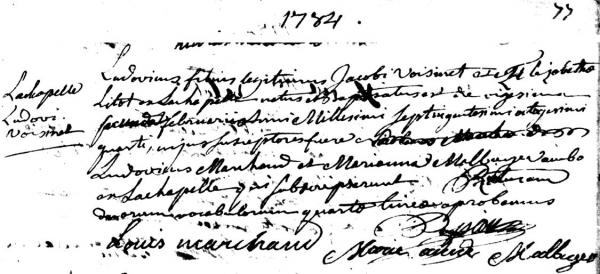 1784.
77
Lachapelle
Ludovi
Voisinet
Ludovicus filius legitimus Jacobi Voisinet et Elisabethæ
Litot en Lachapelle natus et baptisatus est die vigesima
secunda februarii anni Millesimi septingentesimi octogesimi
quarti, cujus susceptores fuere
Ludovicus Marchand et Marianna Malbuyer ambo
en Lachapelle qui subscripserunt
duorum vocabulorum quarta linea approbamus
Louis marchand
Marie Malbuyer